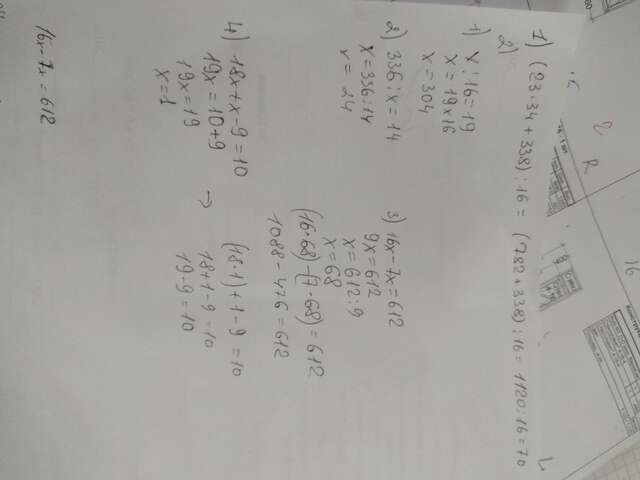 1) (23·34+338):16= (782+338):16=1120:16=70
2)
1) x:16=19
x=19x16
x=304
2) 336:x=14
x=336:14
x=24
3) 16x-7x=612
9x=612
x=612:9
x=68
(16·68)-(7·68)=612
1088-476=612
4) 18x+x-9=10
19x=10+9
19x=19
x=1
→ (18·1)+1-9=10
18+1-9=10
19-9=10
16x-7x=612
R
L
16